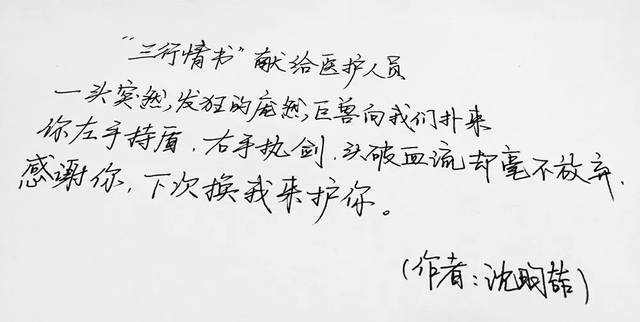 “三行情书”献给医护人员
一头突然,发狂的庞然,巨兽向我们扑来
你左手持盾,右手执剑,头破血流却毫不放弃,
感谢你,下次换我来护你。
(作者:沈昀喆)